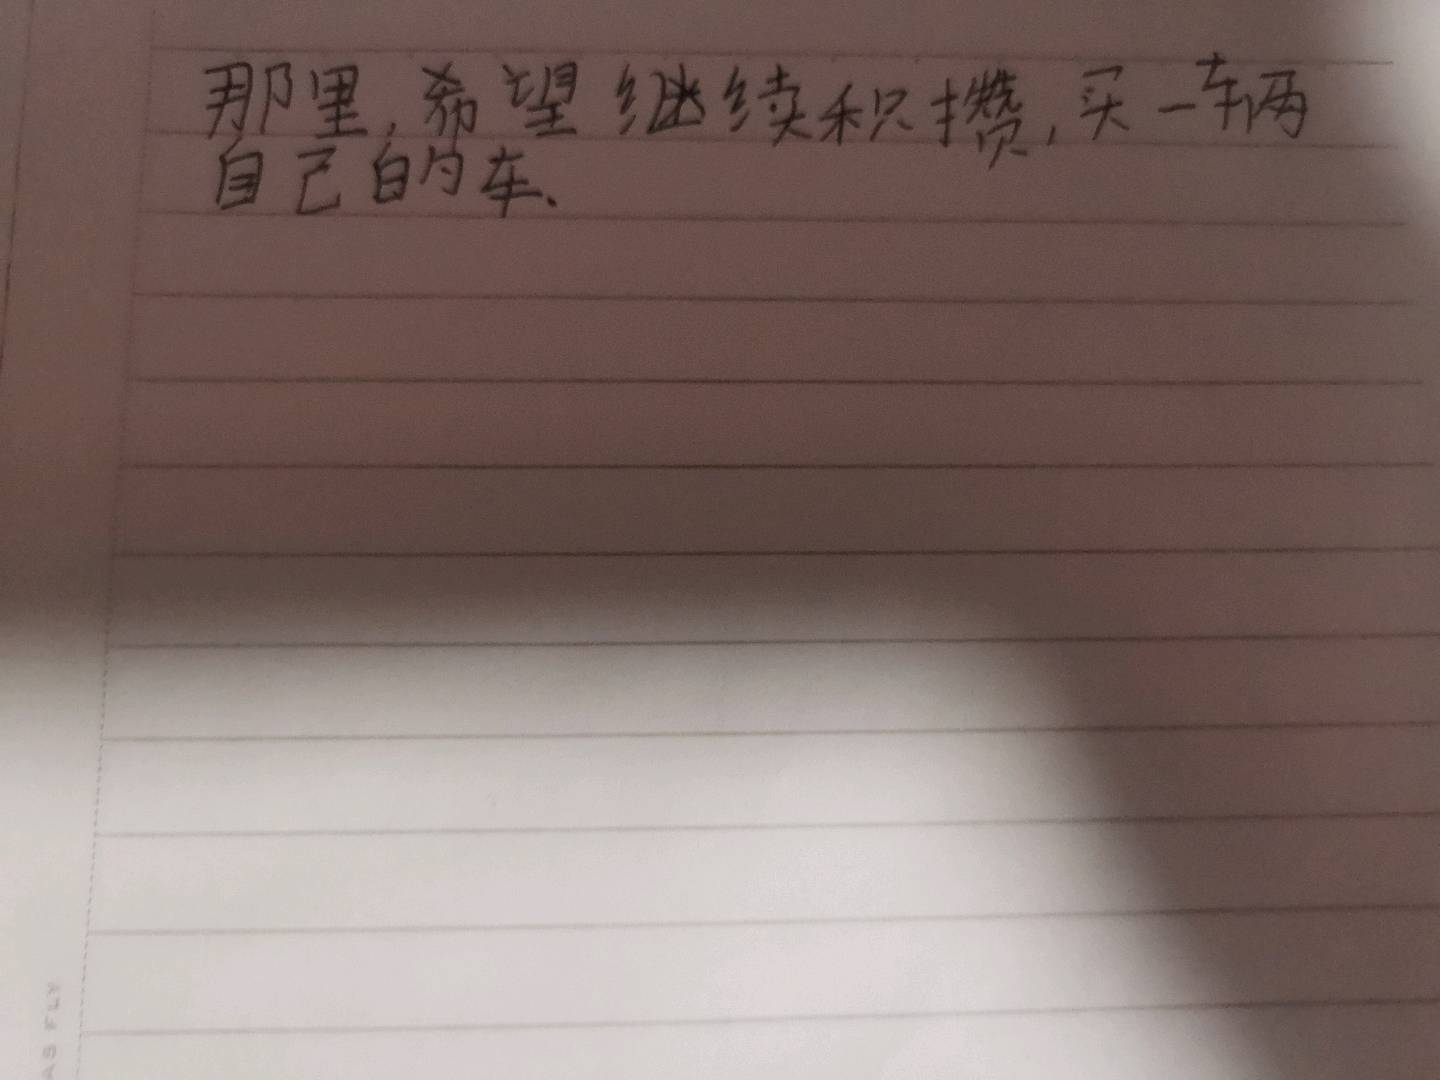 那里,希望继续积攒,买一辆
自己的车.
AS FLY